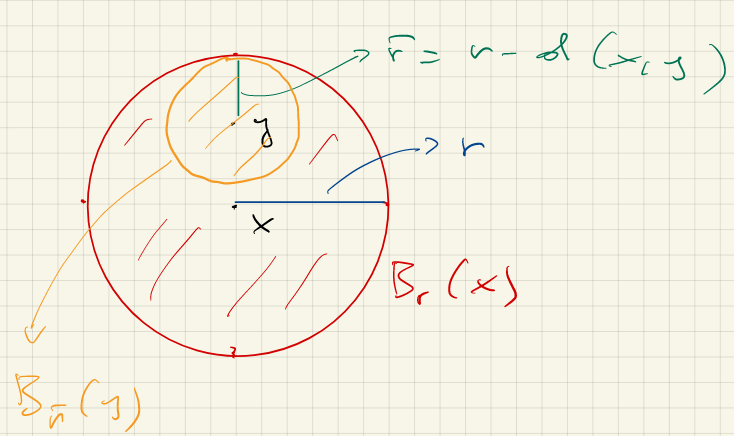 r̄ = r - d(x, y)
y
r
x
B_r(x)
B_r̄(y)